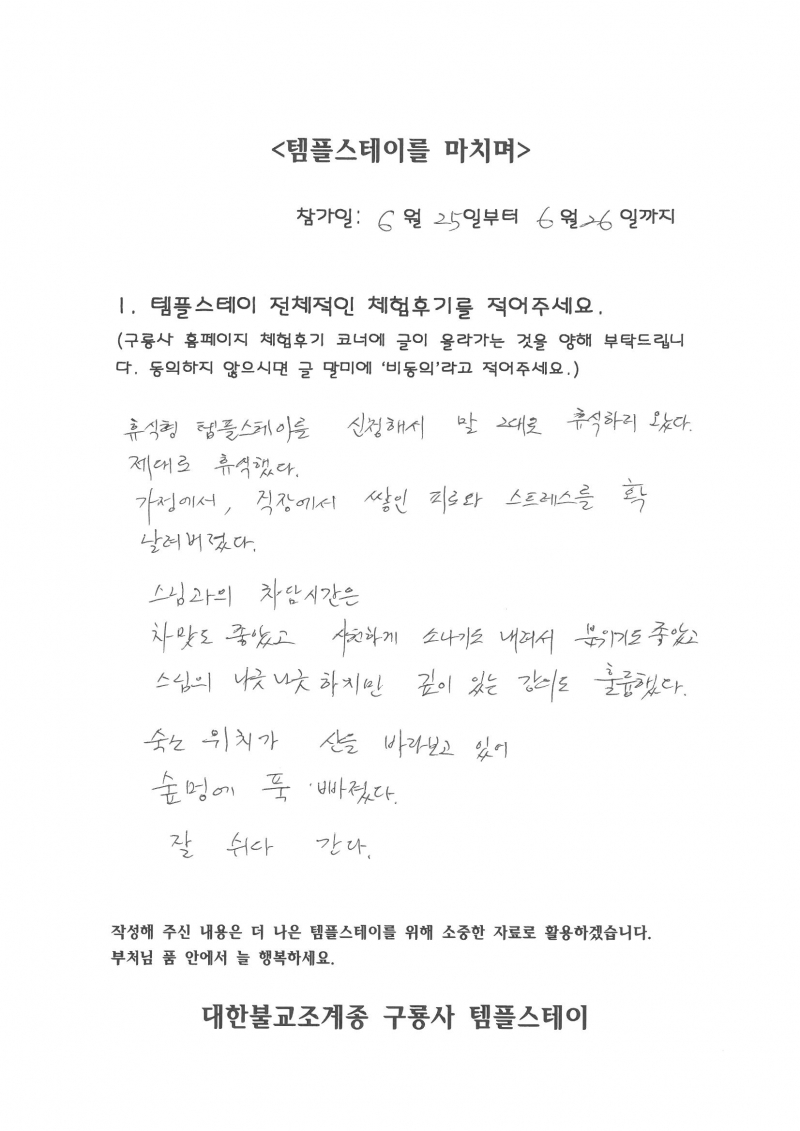 <템플스테이를 마치며>
참가일: 6 월 25일부터 6 월 26 일까지
1. 템플스테이 전체적인 체험후기를 적어주세요.
(구룡사 홈페이지 체험후기 코너에 글이 올라가는 것을 양해 부탁드립니
다. 동의하지 않으시면 글 말미에 '비동의'라고 적어주세요.)
휴식형 템플스테이를 신청해서 말 그대로 휴식하러 왔다.
제대로 휴식했다.
가정에서, 직장에서 쌓인 피로와 스트레스를 확
날려버렸다.
스님과의 차담시간은
차맛도 좋았고 시원하게 소나기도 내려서 분위기도 좋았고
스님의 나긋나긋하지만 깊이 있는 강의도 훌륭했다.
숙소 위치가 산을 바라보고 있어
숲멍에 푹 빠졌다.
잘 쉬다 간다.
작성해 주신 내용은 더 나은 템플스테이를 위해 소중한 자료로 활용하겠습니다.
부처님 품 안에서 늘 행복하세요.
대한불교조계종 구룡사 템플스테이